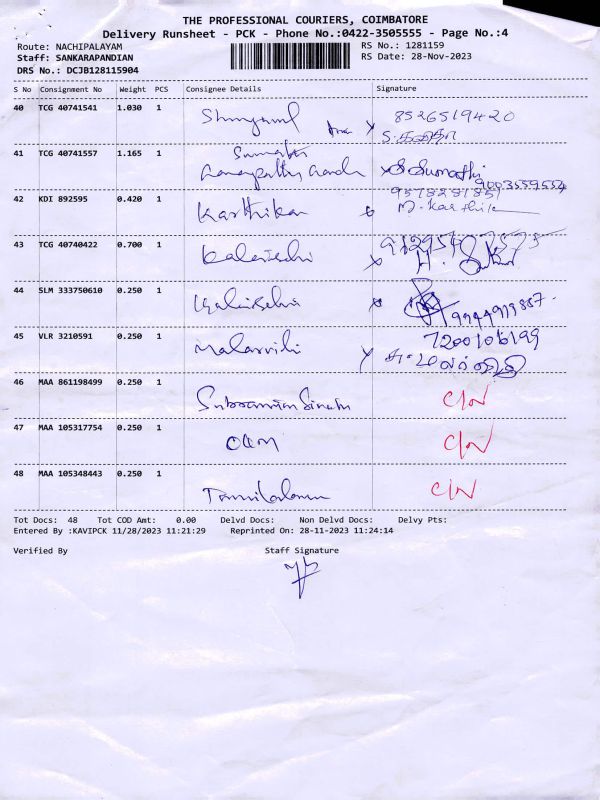 THE PROFESSIONAL COURIERS, COIMBATORE
Delivery Runsheet - PCK - Phone No.:0422-3505555 - Page No.:4
Route: NACHIPALAYAM RS No.: 1281159
Staff: SANKARAPANDIAN RS Date: 28-Nov-2023
DRS No.: DCJB128115904
S No Consignment No Weight PCS Consignee Details Signature
40 TCG 40741541 1.030 1 8526519420
41 TCG 40741557 1.165 1 Sumathi
9003559554
42 KDI 892595 0.420 1 Karthika M. Karthika
43 TCG 40740422 0.700 1
44 SLM 333750610 0.250 1 Kalaiselvi
45 VLR 3210591 0.250 1 Malarvili 7200106199
46 MAA 861198499 0.250 1 C/N
47 MAA 105317754 0.250 1 C/N
48 MAA 105348443 0.250 1 C/N
Tot Docs: 48 Tot COD Amt: 0.00 Delvd Docs: Non Delvd Docs: Delvy Pts:
Entered By :KAVIPCK 11/28/2023 11:21:29 Reprinted On: 28-11-2023 11:24:14
Verified By Staff Signature